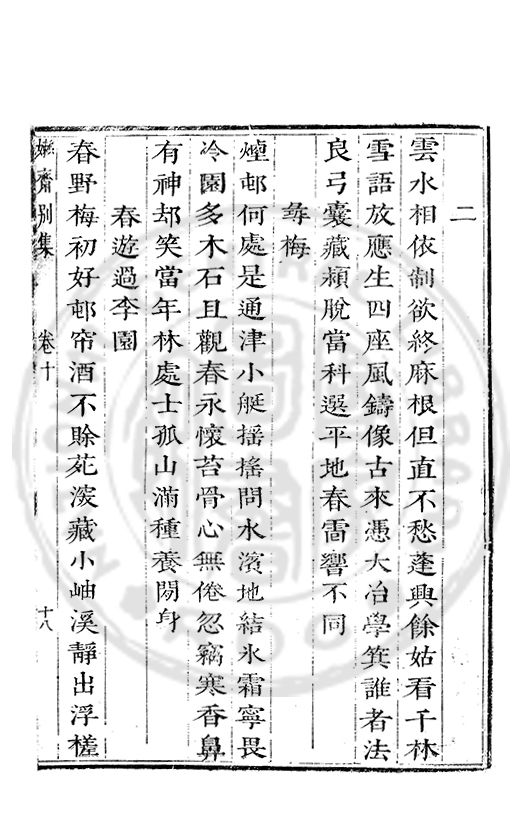 二
雲水相依制欲終麻根但直不愁蓬興餘姑看千林
雪語放應生四座風鑄像古來憑大冶學箕誰者法
良弓囊藏頴脫當科選平地春雷響不同
尋梅
煙邨何處是通津小艇搖搖問水濱地結氷霜寧畏
冷園多木石且觀春永懷苔骨心無倦忽竊寒香鼻
有神却笑當年林處士孤山滿種養閒身
春遊過李園
春野梅初好邨帘酒不賖苑深藏小岫溪靜出浮槎
嬾齋別集
卷十
十八